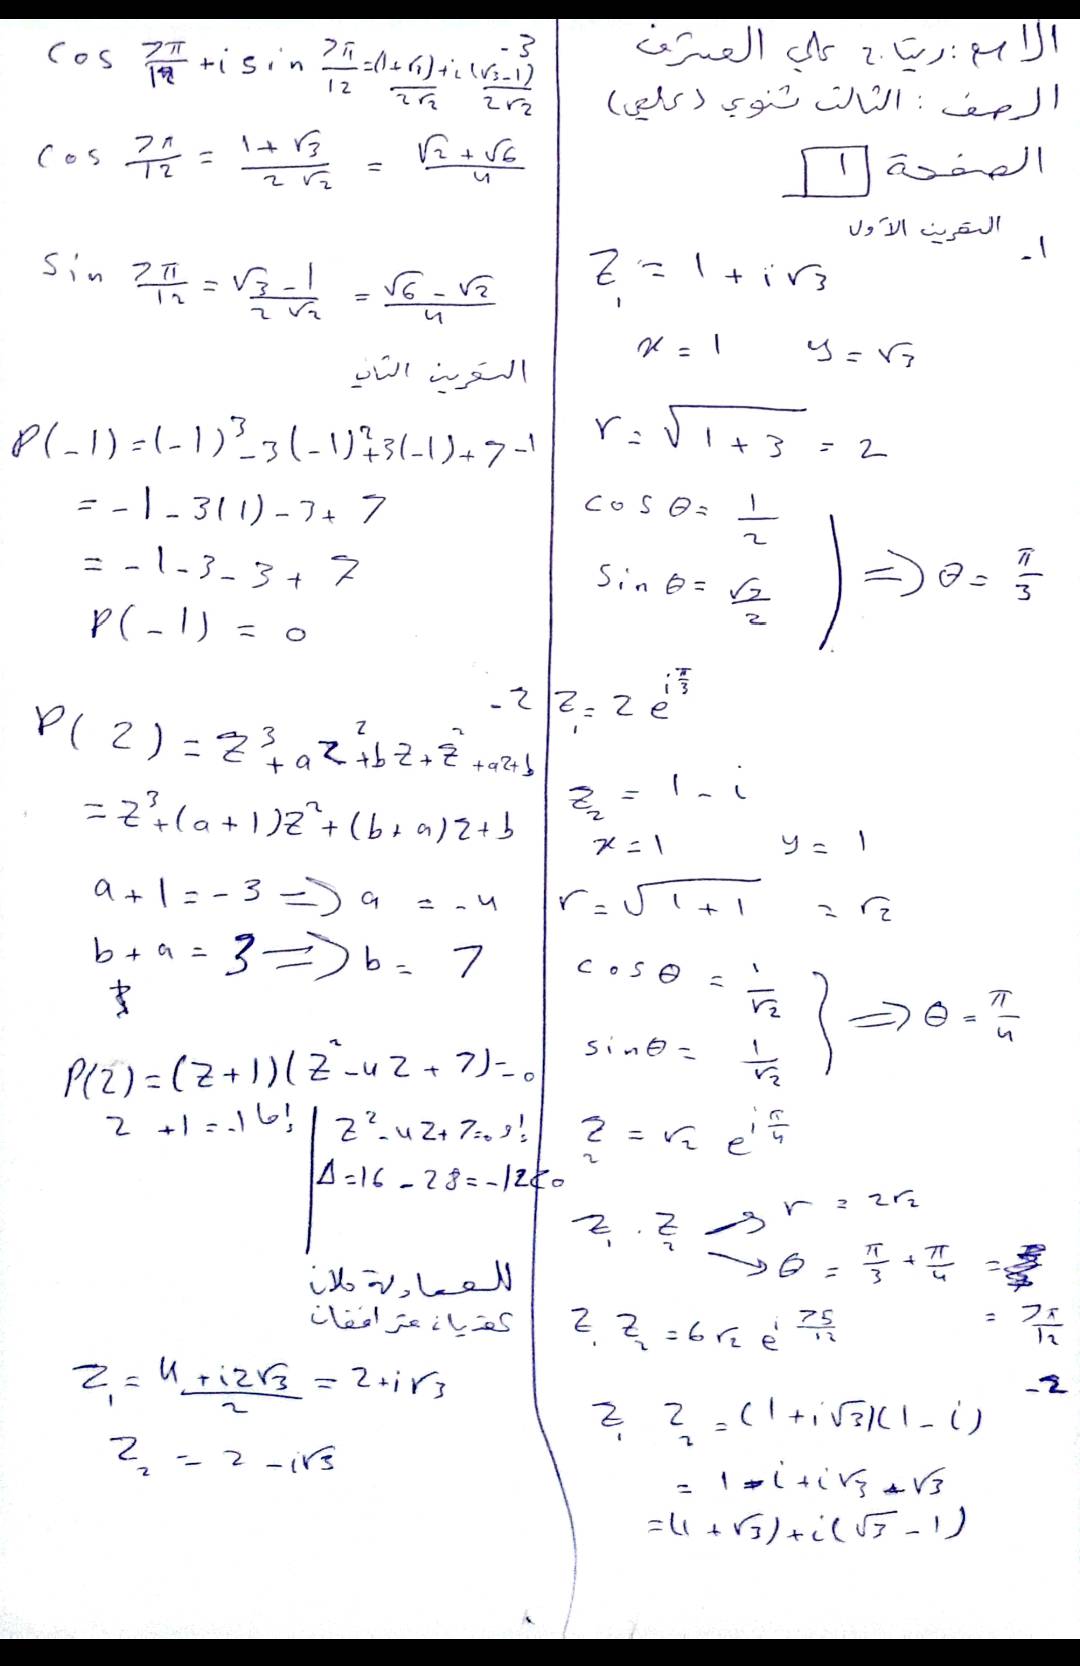 الاسم: ريتاج علي المشرف
الصف: الثالث ثنوي (علمي)
الصفحة 1
التمرين الأول
1-
Z₁ = 1 + i√3
x = 1    y = √3
r = √(1 + 3) = 2
cos θ = 1/2
sin θ = √3/2    } ⇒ θ = π/3
Z₁ = 2 e^(iπ/3)
Z₂ = 1 - i
x = 1    y = 1
r = √(1 + 1) = √2
cos θ = 1/√2
sin θ = 1/√2    } ⇒ θ = π/4
Z₂ = √2 e^(iπ/4)
Z₁ . Z₂ → r = 2√2
→ θ = π/3 + π/4 =
= 7π/12
Z₁ Z₂ = 6√2 e^(i 75/12)
-2
Z₁ Z₂ = (1 + i√3)(1 - i)
= 1 - i + i√3 + √3
= (1 + √3) + i(√3 - 1)
-3
cos 7π/12 + i sin 7π/12 = (1+√3)/(2√2) + i(√3-1)/(2√2)
cos 7π/12 = (1 + √3)/(2√2) = (√2 + √6)/4
sin 7π/12 = (√3 - 1)/(2√2) = (√6 - √2)/4
التمرين الثاني
P(-1) = (-1)³ - 3(-1)² + 3(-1) + 7 -1
= -1 - 3(1) - 3 + 7
= -1 - 3 - 3 + 7
P(-1) = 0
-2
P(Z) = Z³ + aZ² + bZ + Z² + aZ + b
= Z³ + (a + 1)Z² + (b + a)Z + b
a + 1 = -3 ⇒ a = -4
b + a = 3 ⇒ b = 7
P(Z) = (Z + 1)(Z² - 4Z + 7) = 0
إما Z + 1 = -1
أو Z² - 4Z + 7 = 0
Δ = 16 - 28 = -12 < 0
للمعادلة حلان
عقديان مترافقان
Z₁ = (4 + i2√3)/2 = 2 + i√3
Z₂ = 2 - i√3